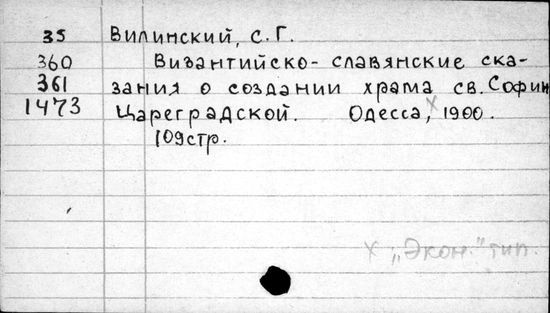 35 Вилинский, С. Г.
360 Византийско-славянские ска-
361 зания о создании храма св. Софии
1473 Цареградской. Одесса, х 1900.
109 стр.
х „Экон." тип.